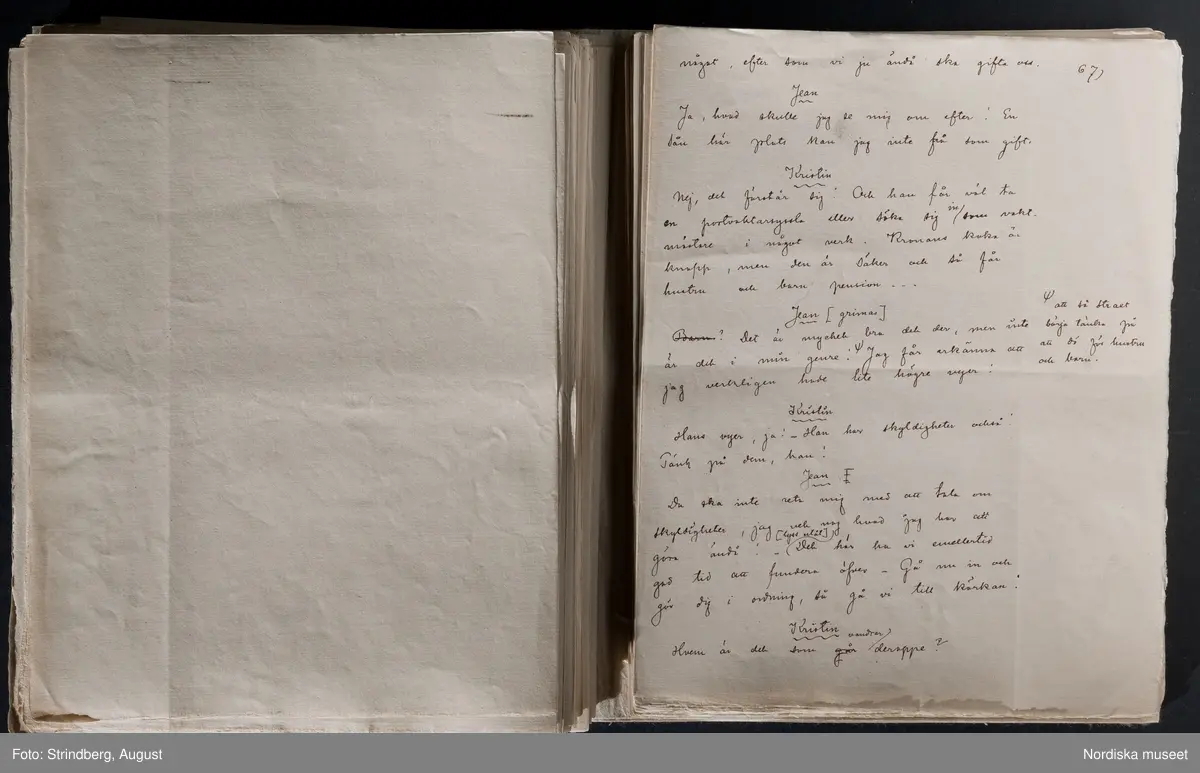 något, efter som vi ju ändå ska gifta oss.
67)
Jean
Ja, hvad skulle jag se mig om efter! En
sån här plats kan jag inte få som gift.
Kristin
Nej, det förstår sig! Och han får väl ta
en portvaktarsyssla eller söka sig in som vakt-
mästare i något verk. Kronans kaka är
knapp, men den är säker och så får
hustru och barn pension ...
Jean [grimas]
Barn? Det är mycket bra det der, men inte
är det i min genre! Ψ Jag får erkänna att
jag verkligen hade lite högre vyer!
Ψ att så strax
börja tänka på
att dö för hustru
och barn.
Kristin
Hans vyer, ja! – Han har skyldigheter också!
Tänk på dem, han!
Jean
Du ska inte reta mig med att tala om
skyldigheter, jag vet nog hvad jag har att
[lyss utåt]
göra ändå! – Det här ha vi emellertid
god tid att fundera öfver – Gå nu in och
gör dig i ordning, så gå vi till kärkan!
Kristin
Hvem är det som går vandrar deroppe?
Foto: Strindberg, August
Nordiska museet